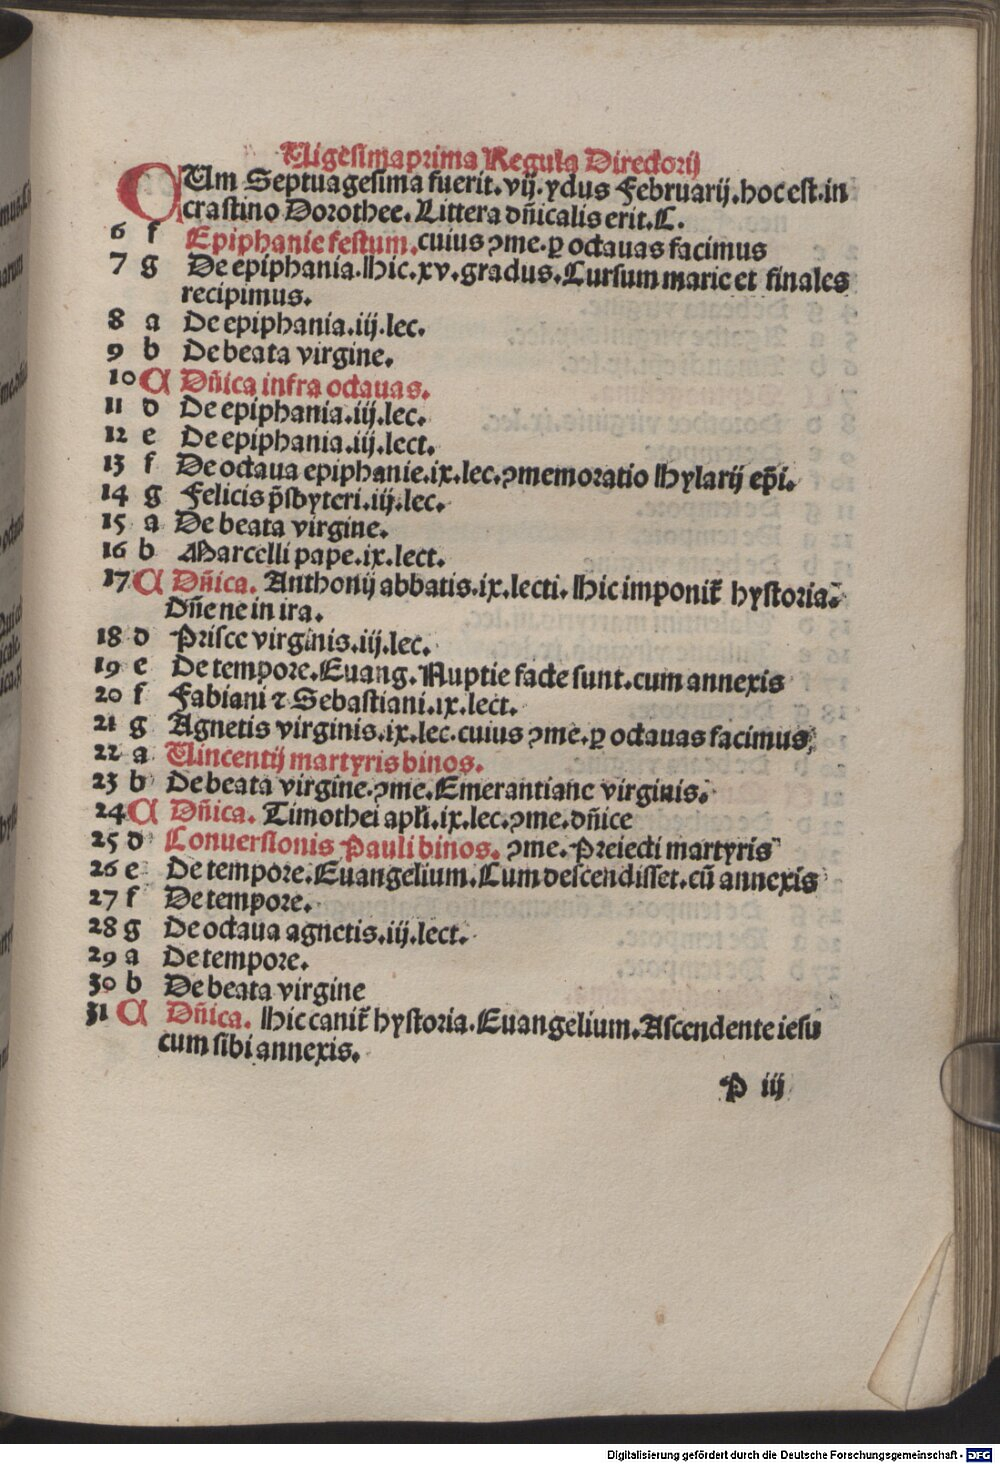 Uigesimaprima Regula Directorij
CUm Septuagesima fuerit. vij. ydus Februarij. hoc est. in
crastino Dorothee. Littera dn̄icalis erit. C.
6 f Epiphanie festum. cuius ↄme. ꝑ octauas facimus
7 g De epiphania. Hic. xv. gradus. Cursum marie et finales
recipimus.
8 a De epiphania. iij. lec.
9 b De beata virgine.
10 C Dn̄ica infra octauas.
11 d De epiphania. iij. lec.
12 e De epiphania. iij. lect.
13 f De octaua epiphanie. ix. lec. ↄmemoratio Hylarij ep̄i.
14 g Felicis p̄sbyteri. iij. lec.
15 a De beata virgine.
16 b Marcelli pape. ix. lect.
17 C Dn̄ica. Anthonij abbatis. ix. lecti. Hic imponit᷑ hystoria.
Dn̄e ne in ira.
18 d Prisce virginis. iij. lec.
19 e De tempore. Euang. Nuptie facte sunt. cum annexis
20 f Fabiani ⁊ Sebastiani. ix. lect.
21 g Agnetis virginis. ix. lec. cuius ↄme. ꝑ octauas facimus
22 a Uincentij martyris binos.
23 b De beata virgine. ↄme. Emerantiane virginis.
24 C Dn̄ica. Timothei apl̄i. ix. lec. ↄme. dn̄ice
25 d Conuersionis Pauli binos. ↄme. Preiecti martyris
26 e De tempore. Euangelium. Cum descendisset. cū annexis
27 f De tempore.
28 g De octaua agnetis. iij. lect.
29 a De tempore.
30 b De beata virgine
31 C Dn̄ica. Hic canit᷑ hystoria. Euangelium. Ascendente iesu
cum sibi annexis.
P iij
Digitalisierung gefördert durch die Deutsche Forschungsgemeinschaft - DFG